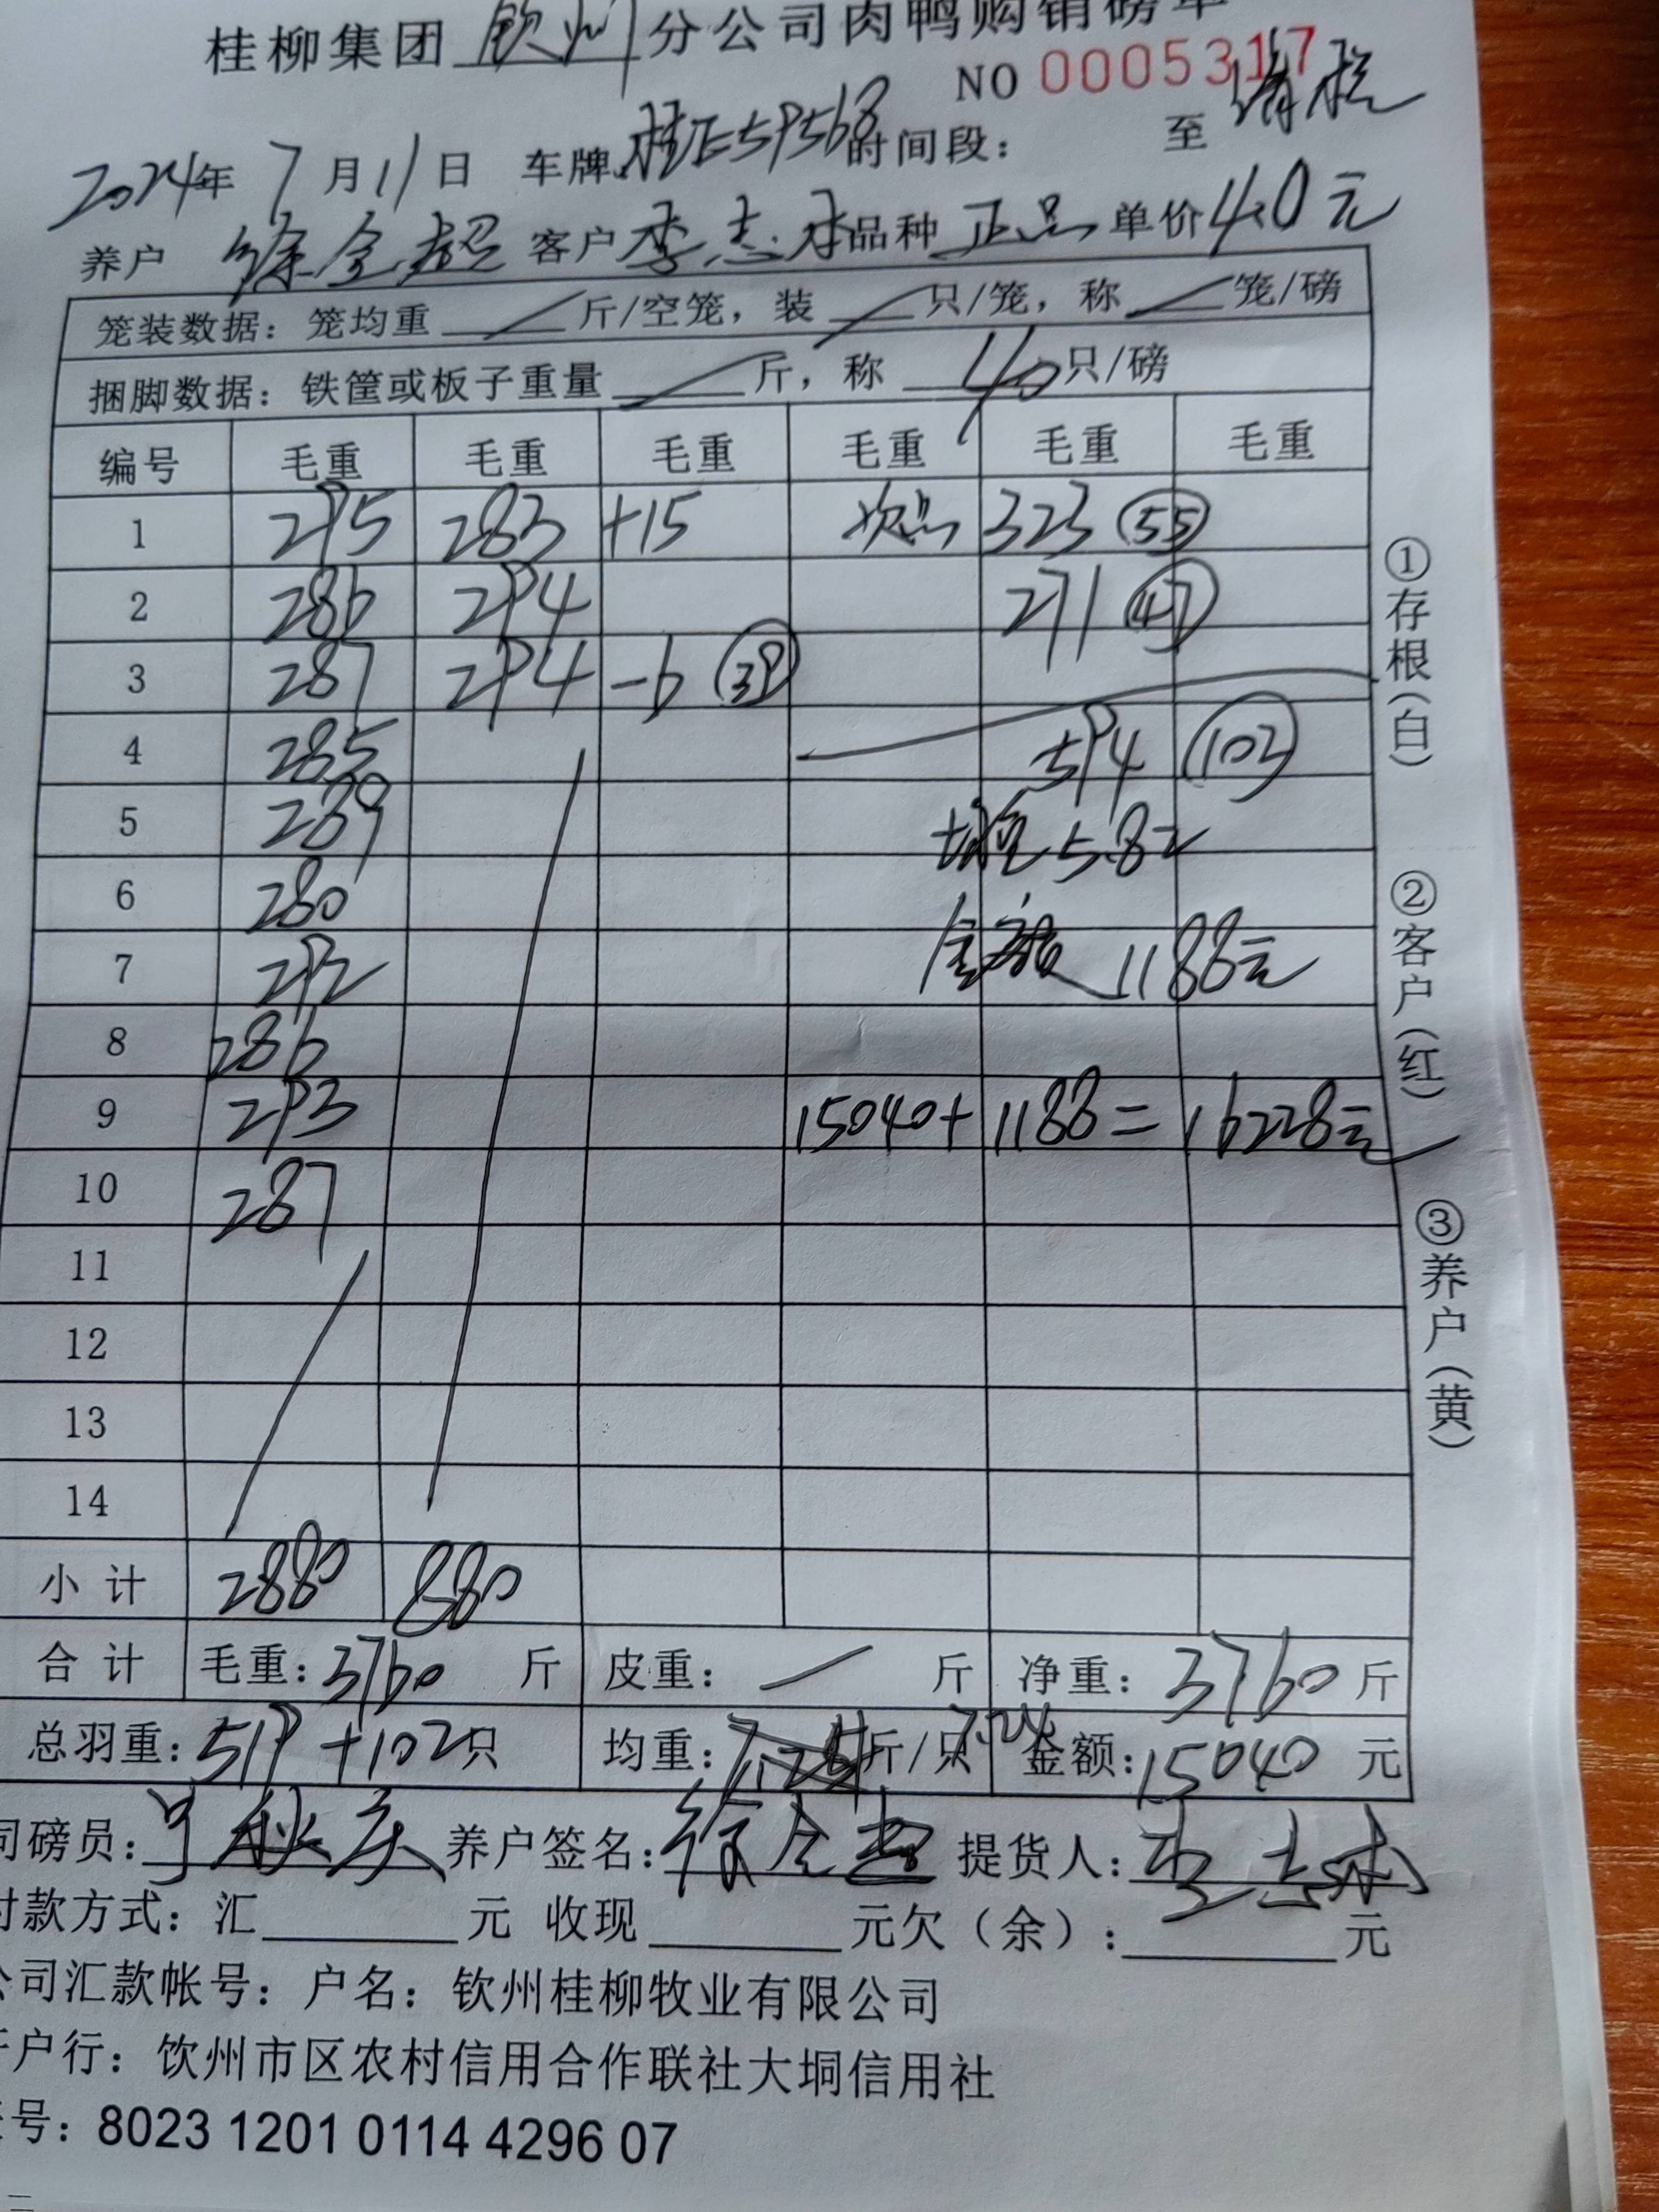 桂柳集团 钦州 分公司肉鸭购销磅单
NO 0005317
2024年 7月11日 车牌 时间段： 至 清栏
养户 徐全超 客户 李志 品种 正品 单价 4.0元
笼装数据：笼均重 斤/空笼，装 只/笼，称 笼/磅
捆脚数据：铁筐或板子重量 斤，称 40 只/磅
编号 毛重 毛重 毛重 毛重 毛重 毛重
1 295 283 +15 次品 323 (55)
2 286 294 271 (47)
3 287 294 -6 (39)
4 285 594 (103)
5 289 5.82
6 280
7 292 金额 1188元
8 286
9 293 15040+1188=16228元
10 287
11
12
13
14
小计 2880 880
合计 毛重：3760 斤 皮重： 斤 净重：3760 斤
总羽重：519+102只 均重： 斤/只 7.24 金额：15040 元
司磅员： 秋 养户签名：徐全超 提货人：
付款方式：汇 元 收现 元欠（余）： 元
公司汇款帐号：户名：钦州桂柳牧业有限公司
开户行：饮州市区农村信用合作联社大垌信用社
号：8023 1201 0114 4296 07
①存根（白）
②客户（红）
③养户（黄）